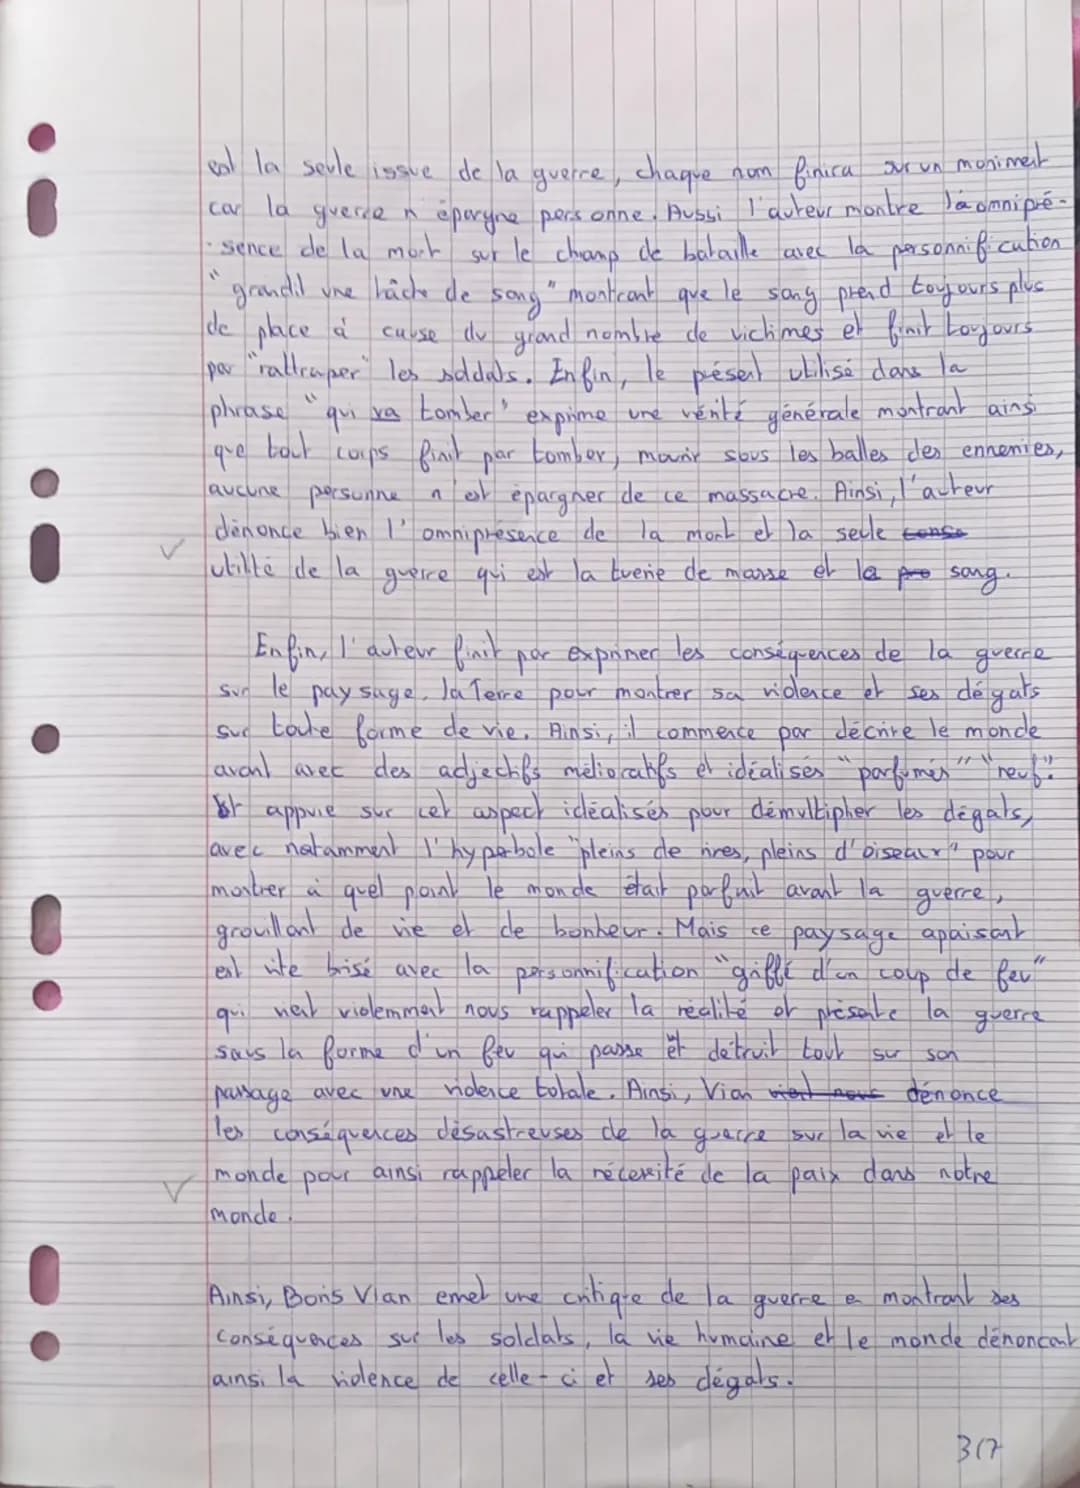 est la seule issue de la guerre, chaque nom finira sur un moniment
car la guerre n'épargne personne. Aussi l'auteur montre l'aomnipré-
sence de la mort sur le champ de bataille avec la personnification
"grandit une tâche de sang" montrant que le sang prend toujours plus
de place à cause du grand nombre de victimes et finit toujours
par "rattraper" les soldats. Enfin, le présent utilisé dans la
phrase "qui va tomber" exprime une vérité générale montrant ainsi
que tout corps finit par tomber, mourir sous les balles des ennemies,
aucune personne n'est épargner de ce massacre. Ainsi, l'auteur
dénonce bien l'omniprésence de la mort et la seule
utilité de la guerre qui est la tuerie de masse et le sang.
Enfin, l'auteur finit par exprimer les conséquences de la guerre
sur le paysage, la Terre pour montrer sa violence et ses dégats
sur toute forme de vie. Ainsi, il commence par décrire le monde
avant avec des adjectifs mélioratifs et idéalisés "parfumés" "neuf".
Et appuie sur cet aspect idéalisés pour démultiplier les dégats,
avec notamment l'hyperbole "pleins de rires, pleins d'oiseaux" pour
montrer à quel point le monde était parfait avant la guerre,
grouillant de vie et de bonheur. Mais ce paysage apaisant
est vite brisé avec la personnification "griffé d'un coup de feu"
qui vient violemment nous rappeler la réalité et présente la guerre
sous la forme d'un feu qui passe et détruit tout sur son
passage avec une violence totale. Ainsi, Vian dénonce
les conséquences désastreuses de la guerre sur la vie et le
monde pour ainsi rappeler la nécessité de la paix dans notre
monde.
Ainsi, Boris Vian emet une critique de la guerre e montrant ses
conséquences sur les soldats, la vie humaine et le monde dénonçant
ainsi la violence de celle-ci et ses dégats.
3/7